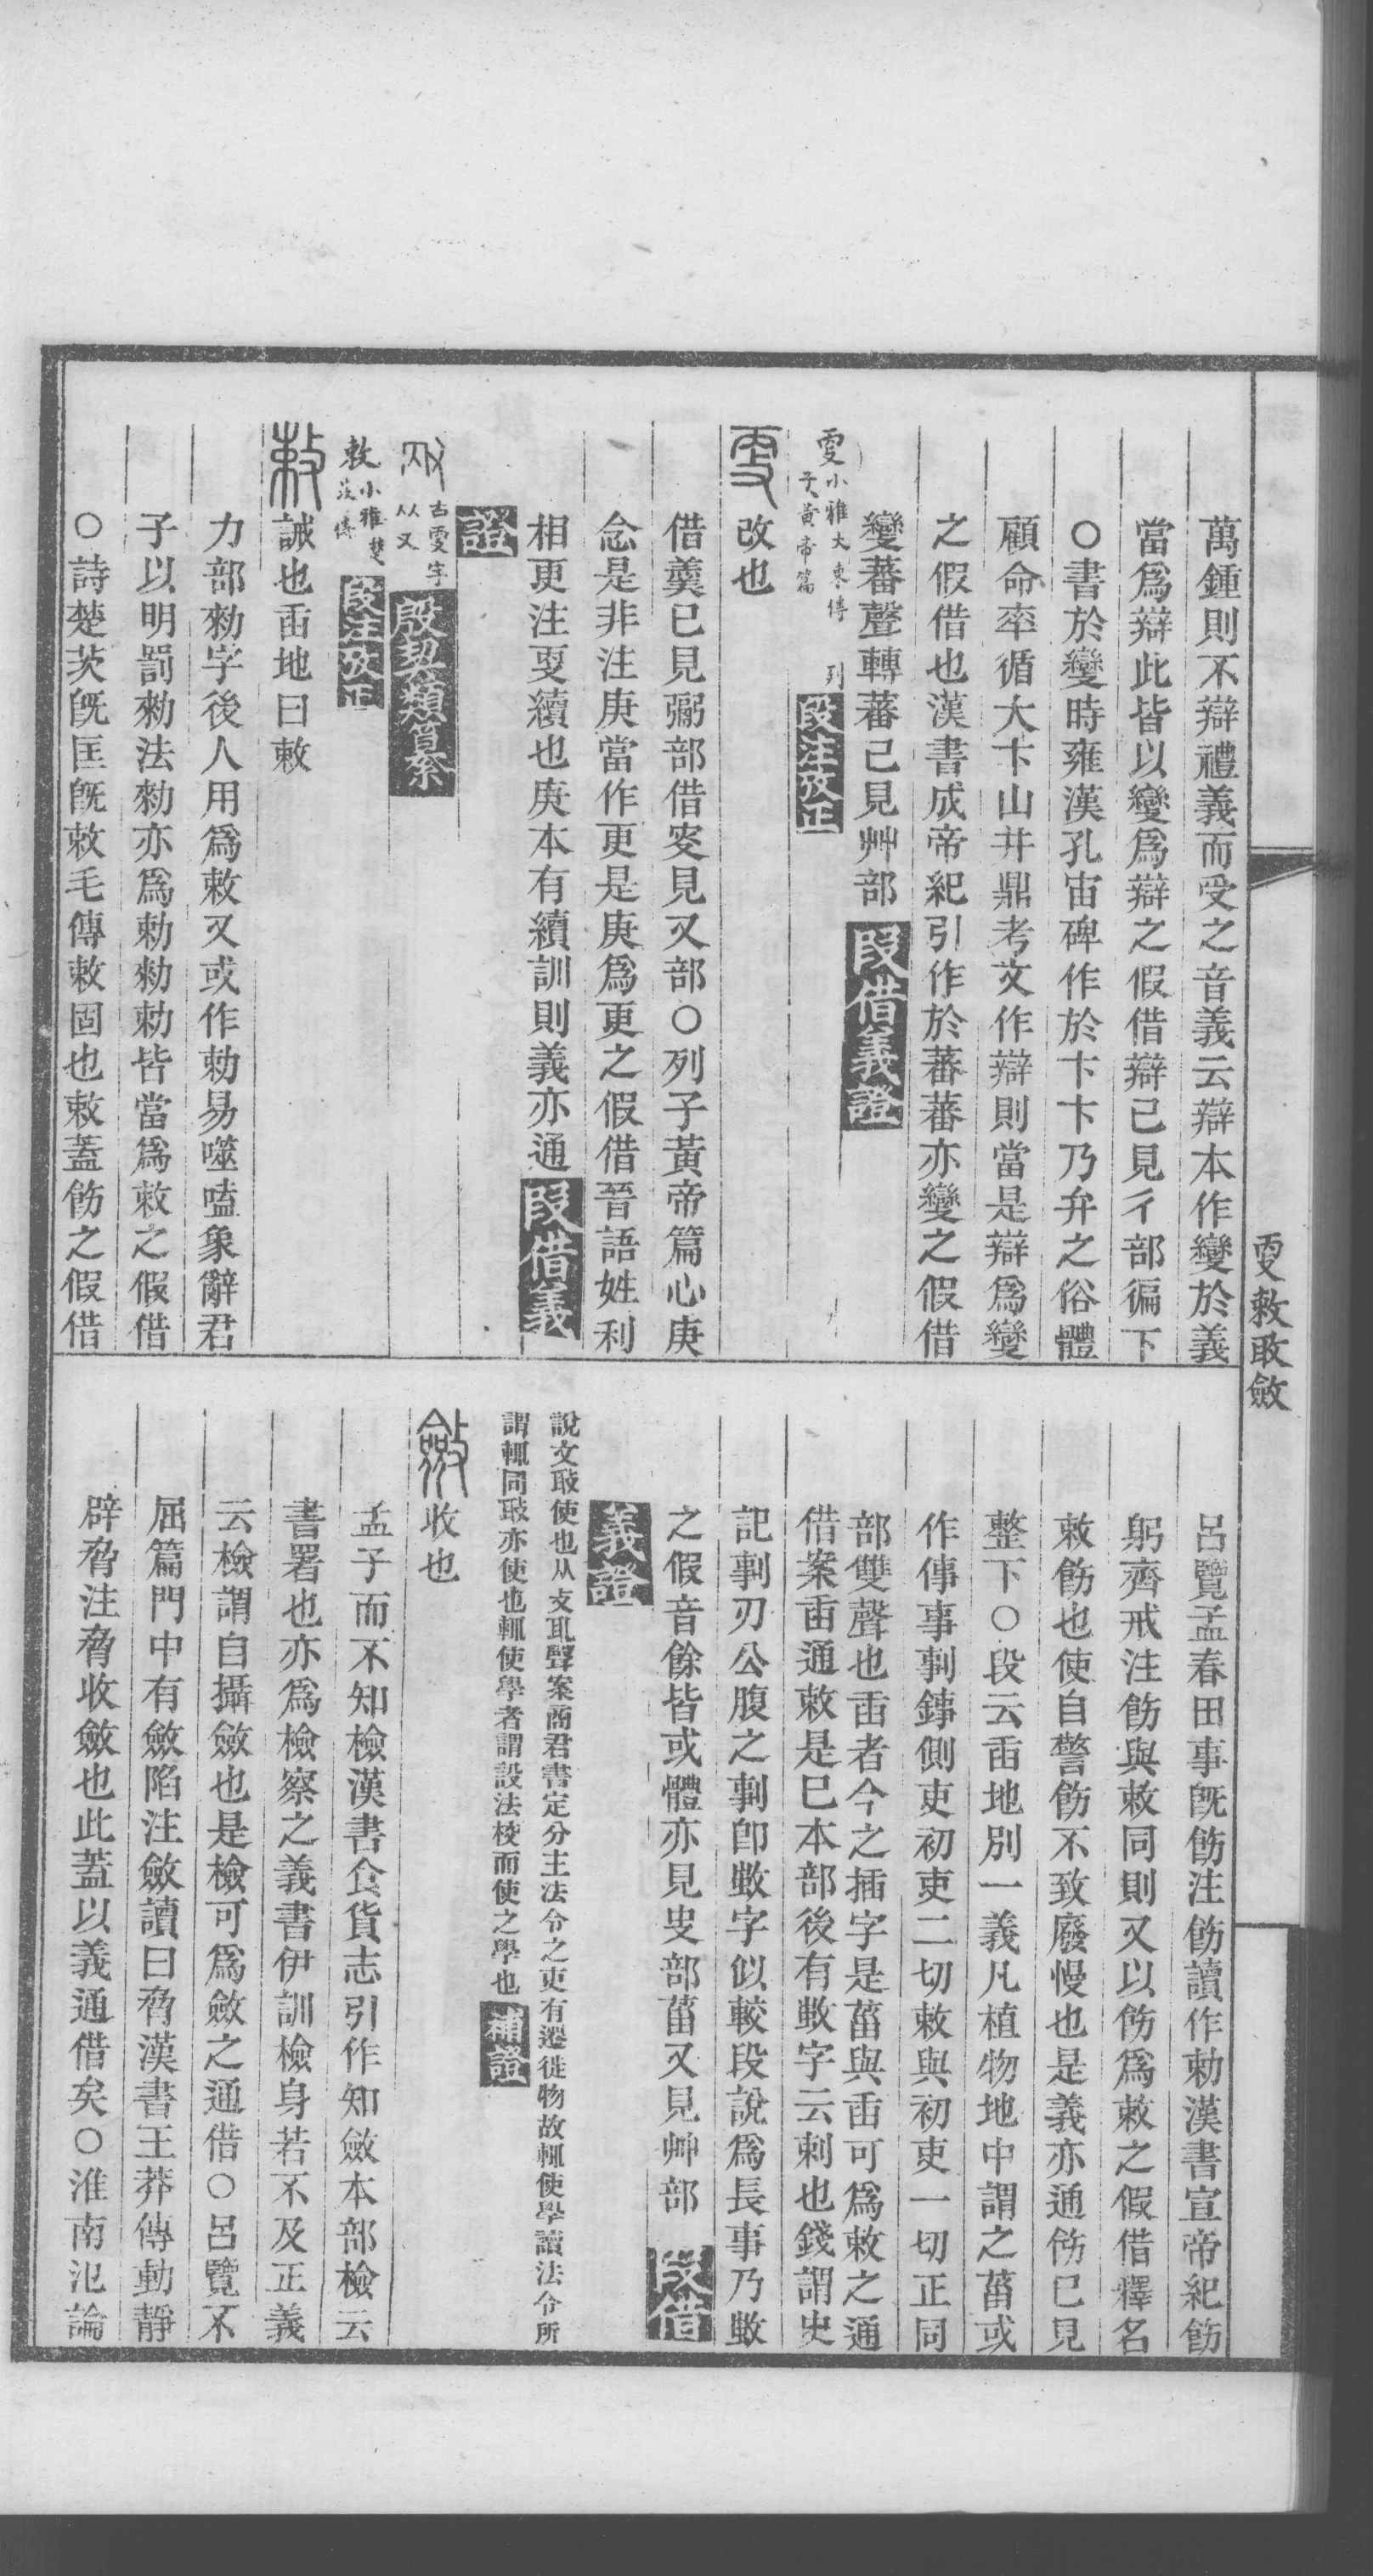 㪅敕敢斂
萬鍾則不辯禮義而受之音義云辯本作變於義
當爲辯此皆以變爲辯之假借辯已見彳部徧下
○書於變時雍漢孔宙碑作於卞卞乃弁之俗體
顧命率循大卞山井鼎考文作辯則當是辯爲變
之假借也漢書成帝紀引作於蕃蕃亦變之假借
變蕃聲轉蕃已見艸部 段借義證
㪅小雅大東傳 列
子黃帝篇 段注攷正
㪅改也
借羹已見䰜部借叜見又部○列子黃帝篇心庚
念是非注庚當作更是庚爲更之假借晉語姓利
相更注㪅續也庚本有續訓則義亦通 段借義
證
古㪅字
从从又 殷契類纂
敕小雅楚
茨傳 段注攷正
敕誡也臿地曰敕
力部勑字後人用爲敕又或作勅易噬嗑象辭君
子以明罰勑法勑亦爲勅勑勅皆當爲敕之假借
○詩楚茨旣匡旣敕毛傳敕固也敕蓋飭之假借
呂覽孟春田事旣飭注飭讀作勅漢書宣帝紀飭
躬齊戒注飭與敕同則又以飭爲敕之假借釋名
敕飭也使自警飭不致廢慢也是義亦通飭已見
整下○段云臿地別一義凡植物地中謂之菑或
作傳事剚鋳側吏初吏二切敕與初吏一切正同
部雙聲也臿者今之插字是菑與臿可爲敕之通
借案臿通敕是巳本部後有㪤字云刺也錢謂史
記剚刃公腹之剚卽㪤字似較段說爲長事乃㪤
之假音餘皆或體亦見史部菑又見艸部 段借
義證
說文㪇使也从攴耴聲案商君書定分主法令之吏有遷徙物故輒使學讀法令所
謂輒同㪇亦使也輒使學者謂設法棱而使之學也 補證
斂收也
孟子而不知檢漢書食貨志引作知斂本部檢云
書署也亦爲檢察之義書伊訓檢身若不及正義
云檢謂自攝斂也是檢可爲斂之通借○呂覽不
屈篇門中有斂陷注斂讀曰脅漢書王莽傳動靜
辟脅注脅收斂也此蓋以義通借矣○淮南氾論